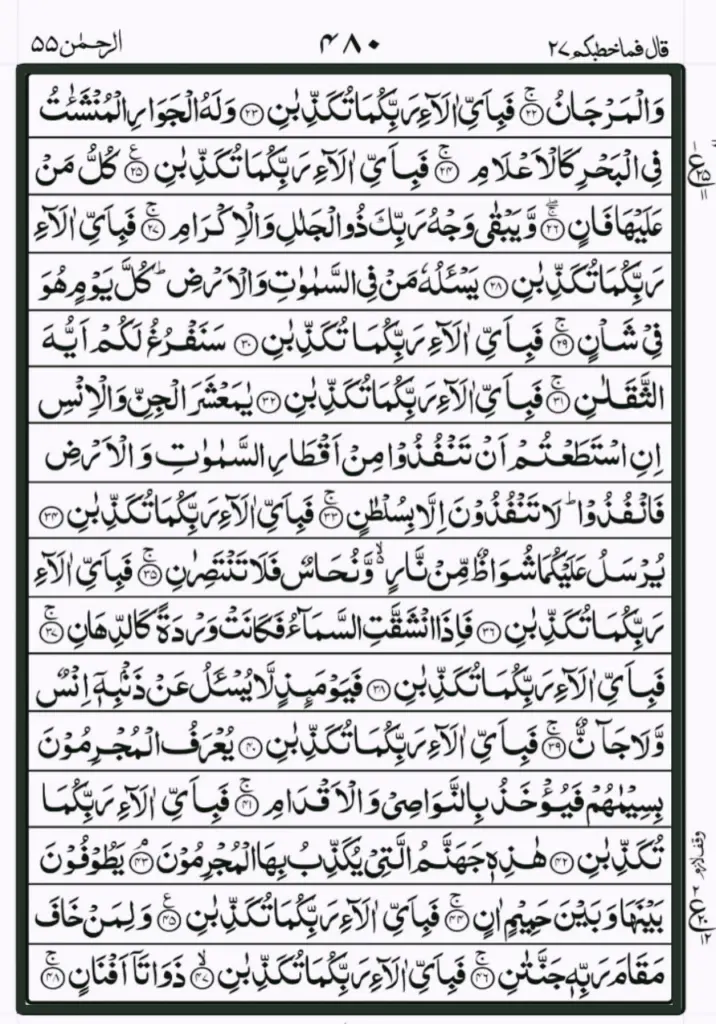 قال فما خطبكم ٢٧ ۴۸۰ الرحمٰن ۵۵
وَالۡمَرۡجَانُ ۚ‏﴿۲۲﴾ فَبِاَىِّ اٰلَاۤءِ رَبِّكُمَا تُكَذِّبٰنِ‏ ﴿۲۳﴾ وَلَهُ الۡجَوَارِ الۡمُنۡشَئٰتُ
فِى الۡبَحۡرِ كَالۡاَعۡلَامِ‌ۚ‏ ﴿۲۴﴾ فَبِاَىِّ اٰلَاۤءِ رَبِّكُمَا تُكَذِّبٰنِ‏ ﴿۲۵﴾ ع كُلُّ مَنۡ
عَلَيۡهَا فَانٍ‌ ۚۖ‏ ﴿۲۶﴾ وَّيَبۡقٰى وَجۡهُ رَبِّكَ ذُو الۡجَلٰلِ وَالۡاِكۡرَامِ‌ۚ‏ ﴿۲۷﴾ فَبِاَىِّ اٰلَاۤءِ
رَبِّكُمَا تُكَذِّبٰنِ‏ ﴿۲۸﴾ يَسۡـَٔـلُهٗ مَنۡ فِى السَّمٰوٰتِ وَالۡاَرۡضِ‌ؕ كُلَّ يَوۡمٍ هُوَ
فِىۡ شَاۡنٍ‌ۚ‏ ﴿۲۹﴾ فَبِاَىِّ اٰلَاۤءِ رَبِّكُمَا تُكَذِّبٰنِ‏ ﴿۳۰﴾ سَنَفۡرُغُ لَـكُمۡ اَيُّهَ
الثَّقَلٰنِ‌ۚ‏ ﴿۳۱﴾ فَبِاَىِّ اٰلَاۤءِ رَبِّكُمَا تُكَذِّبٰنِ‏ ﴿۳۲﴾ يٰمَعۡشَرَ الۡجِنِّ وَالۡاِنۡسِ
اِنِ اسۡتَطَعۡتُمۡ اَنۡ تَنۡفُذُوۡا مِنۡ اَقۡطَارِ السَّمٰوٰتِ وَالۡاَرۡضِ
فَانْفُذُوۡا‌ؕ لَا تَنۡفُذُوۡنَ اِلَّا بِسُلۡطٰنٍ‌ۚ‏ ﴿۳۳﴾ فَبِاَىِّ اٰلَاۤءِ رَبِّكُمَا تُكَذِّبٰنِ‏ ﴿۳۴﴾
يُرۡسَلُ عَلَيۡكُمَا شُوَاظٌ مِّنۡ نَّارٍ ۙ وَّنُحَاسٌ فَلَا تَنۡتَصِرٰنِ‌ۚ‏ ﴿۳۵﴾ فَبِاَىِّ اٰلَاۤءِ
رَبِّكُمَا تُكَذِّبٰنِ‏ ﴿۳۶﴾ فَاِذَا انْشَقَّتِ السَّمَآءُ فَكَانَتۡ وَرۡدَةً كَالدِّهَانِ‌ۚ‏ ﴿۳۷﴾
فَبِاَىِّ اٰلَاۤءِ رَبِّكُمَا تُكَذِّبٰنِ‏ ﴿۳۸﴾ فَيَوۡمَٮِٕذٍ لَّا يُسۡـَٔـلُ عَنۡ ذَنۡۢبِهٖۤ اِنۡسٌ
وَّلَا جَآنٌّ‌ۚ‏ ﴿۳۹﴾ فَبِاَىِّ اٰلَاۤءِ رَبِّكُمَا تُكَذِّبٰنِ‏ ﴿۴۰﴾ يُعۡرَفُ الۡمُجۡرِمُوۡنَ
بِسِيۡمٰهُمۡ فَيُؤۡخَذُ بِالنَّوَاصِىۡ وَ الۡاَقۡدَامِ‌ۚ‏ ﴿۴۱﴾ فَبِاَىِّ اٰلَاۤءِ رَبِّكُمَا
تُكَذِّبٰنِ‏ ﴿۴۲﴾ هٰذِهٖ جَهَنَّمُ الَّتِىۡ يُكَذِّبُ بِهَا الۡمُجۡرِمُوۡنَ‌ۘ‏ ﴿۴۳﴾ يَطُوۡفُوۡنَ
بَيۡنَهَا وَبَيۡنَ حَمِيۡمٍ اٰنٍ‌ۚ‏ ﴿۴۴﴾ فَبِاَىِّ اٰلَاۤءِ رَبِّكُمَا تُكَذِّبٰنِ‏ ﴿۴۵﴾ ع وَلِمَنۡ خَافَ
مَقَامَ رَبِّهٖ جَنَّتٰنِ‌ۚ‏ ﴿۴۶﴾ فَبِاَىِّ اٰلَاۤءِ رَبِّكُمَا تُكَذِّبٰنِۙ‏ ﴿۴۷﴾ ذَوَاتَاۤ اَفۡنَانٍ‌ۚ‏ ﴿۴۸﴾